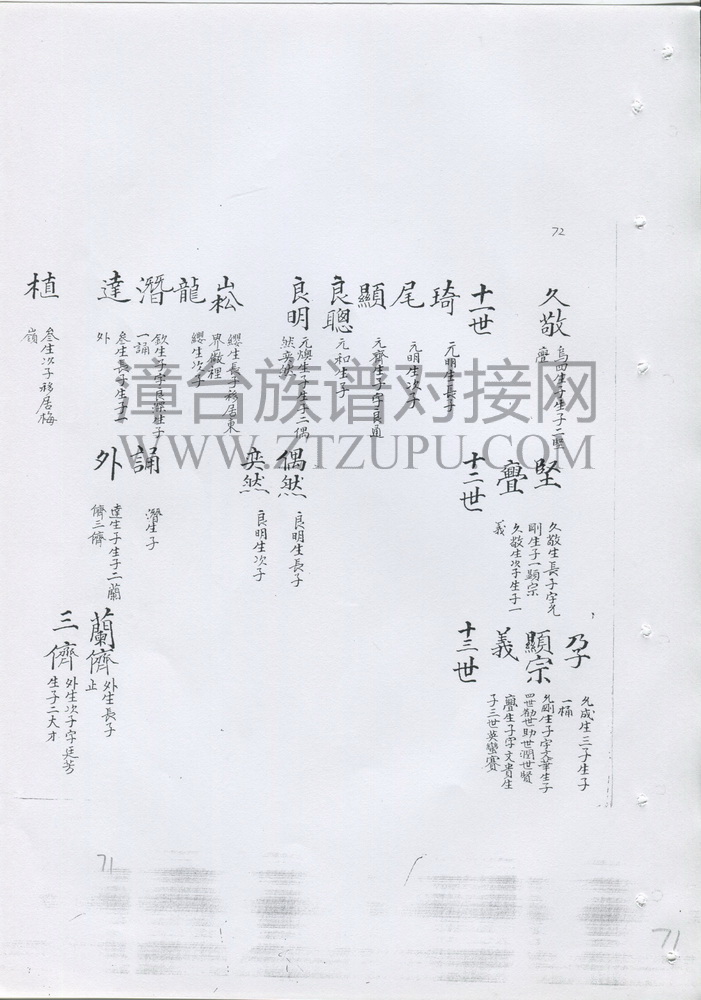 72
久敬
生子生子二堅
亹
十一世
琦
元明生長子
尾
元明生次子
顯
元齊生子字良通
良聰
元和生子
良明
生子生子二偶
然奕然
崧
纓生長子移居東
界徽裡
龍
纓生次子
潛
欽生子字良深生子
一誦
達
叄生長子生子一
外
植
叄生次子移居梅
嶺
章台族谱对接网
WWW.ZTZUPU.COM
堅
久敬生長子字允
剛生子一顯宗
亹
久敬生次子生子一
義
十二世
偶然
良明生長子
奕然
良明生次子
誦
潛生子
外
達生子生子二蘭
儕三儕
孕
允成生三子生子
一桶
顯宗
允剛生子字文華生子
四世勸世助世潤世賢
義
亹生子字文貴生
子三世英蠻賽
十三世
蘭儕
外生長子
止
三儕
外生次子字廷芳
生子二大才
71
71